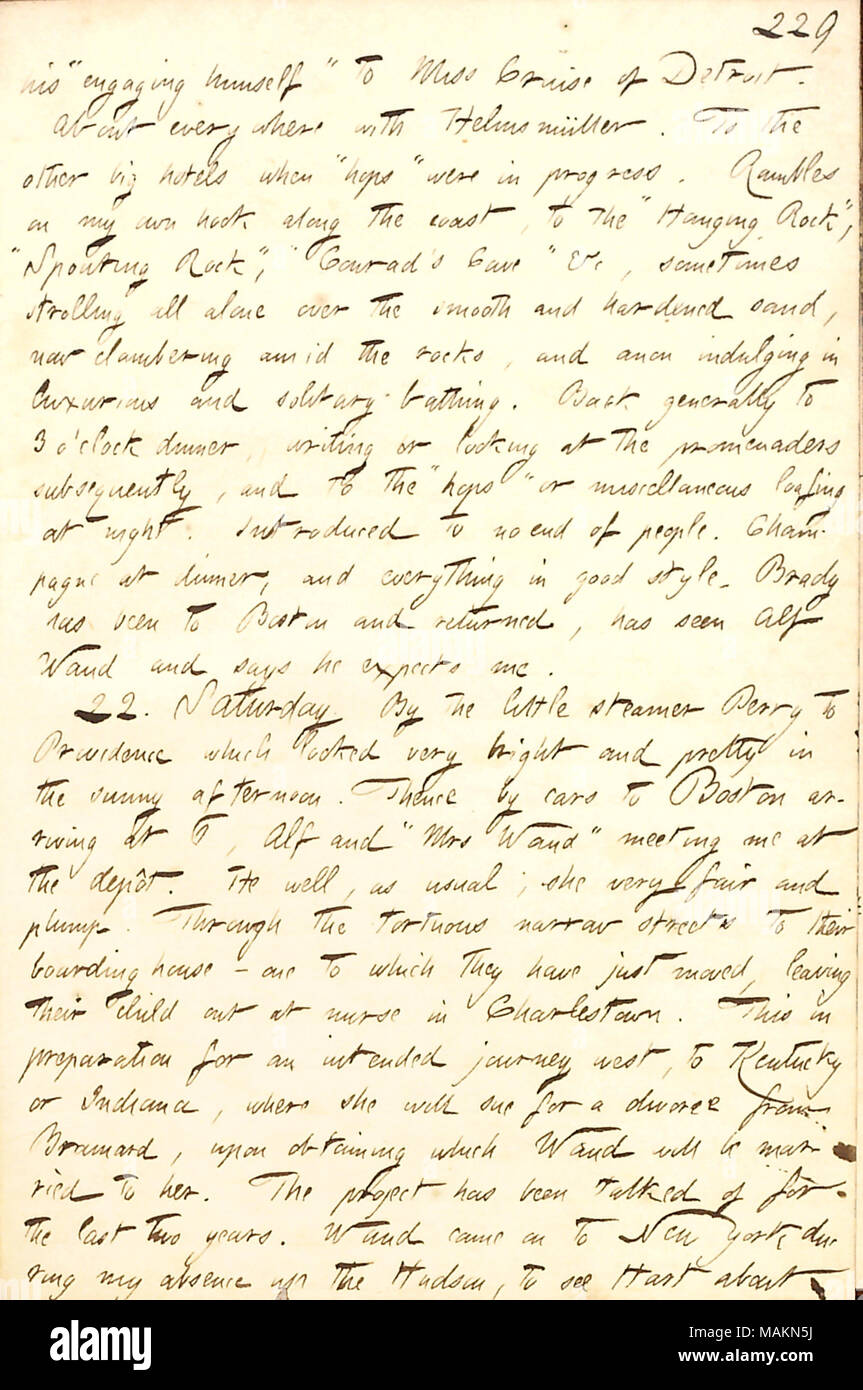 229
his "engaging himself" to Miss Cruise of Detroit.
About everywhere with Helmsmüller. To the
other big hotels when "hops" were in progress. Rambles
on my own hook along the coast, to the "Hanging Rock",
"Spouting Rock", "Conrad's Cave" &c, sometimes
strolling all alone over the smooth and hardened sand,
now clambering amid the rocks, and anon indulging in
luxurious and solitary bathing. Back generally to
3 o'clock dinner, writing or looking at the promenaders
subsequently, and to the "hops" or miscellaneous loafing
at night. Introduced to no end of people. Cham-
pagne at dinner, and everything in good style. Brady
has been to Boston and returned, has seen Alf
Waud and says he expects me.
22. Saturday. By the little steamer Perry to
Providence which looked very bright and pretty in
the sunny afternoon. Thence by cars to Boston ar-
riving at 6, Alf and "Mrs Waud" meeting me at
the depôt. He well, as usual; she very fair and
plump. Through the tortuous narrow streets to their
boarding house - one to which they have just moved, leaving
their child out at nurse in Charlestown. This in
preparation for an intended journey west, to Kentucky
or Indiana, where she will sue for a divorce from
Brainard, upon obtaining which Waud will be mar-
ried to her. The project has been talked of for
the last two years. Waud came on to New York du-
ring my absence up the Hudson, to see Hart about
alamy
Image ID: MAKN5J
www.alamy.com